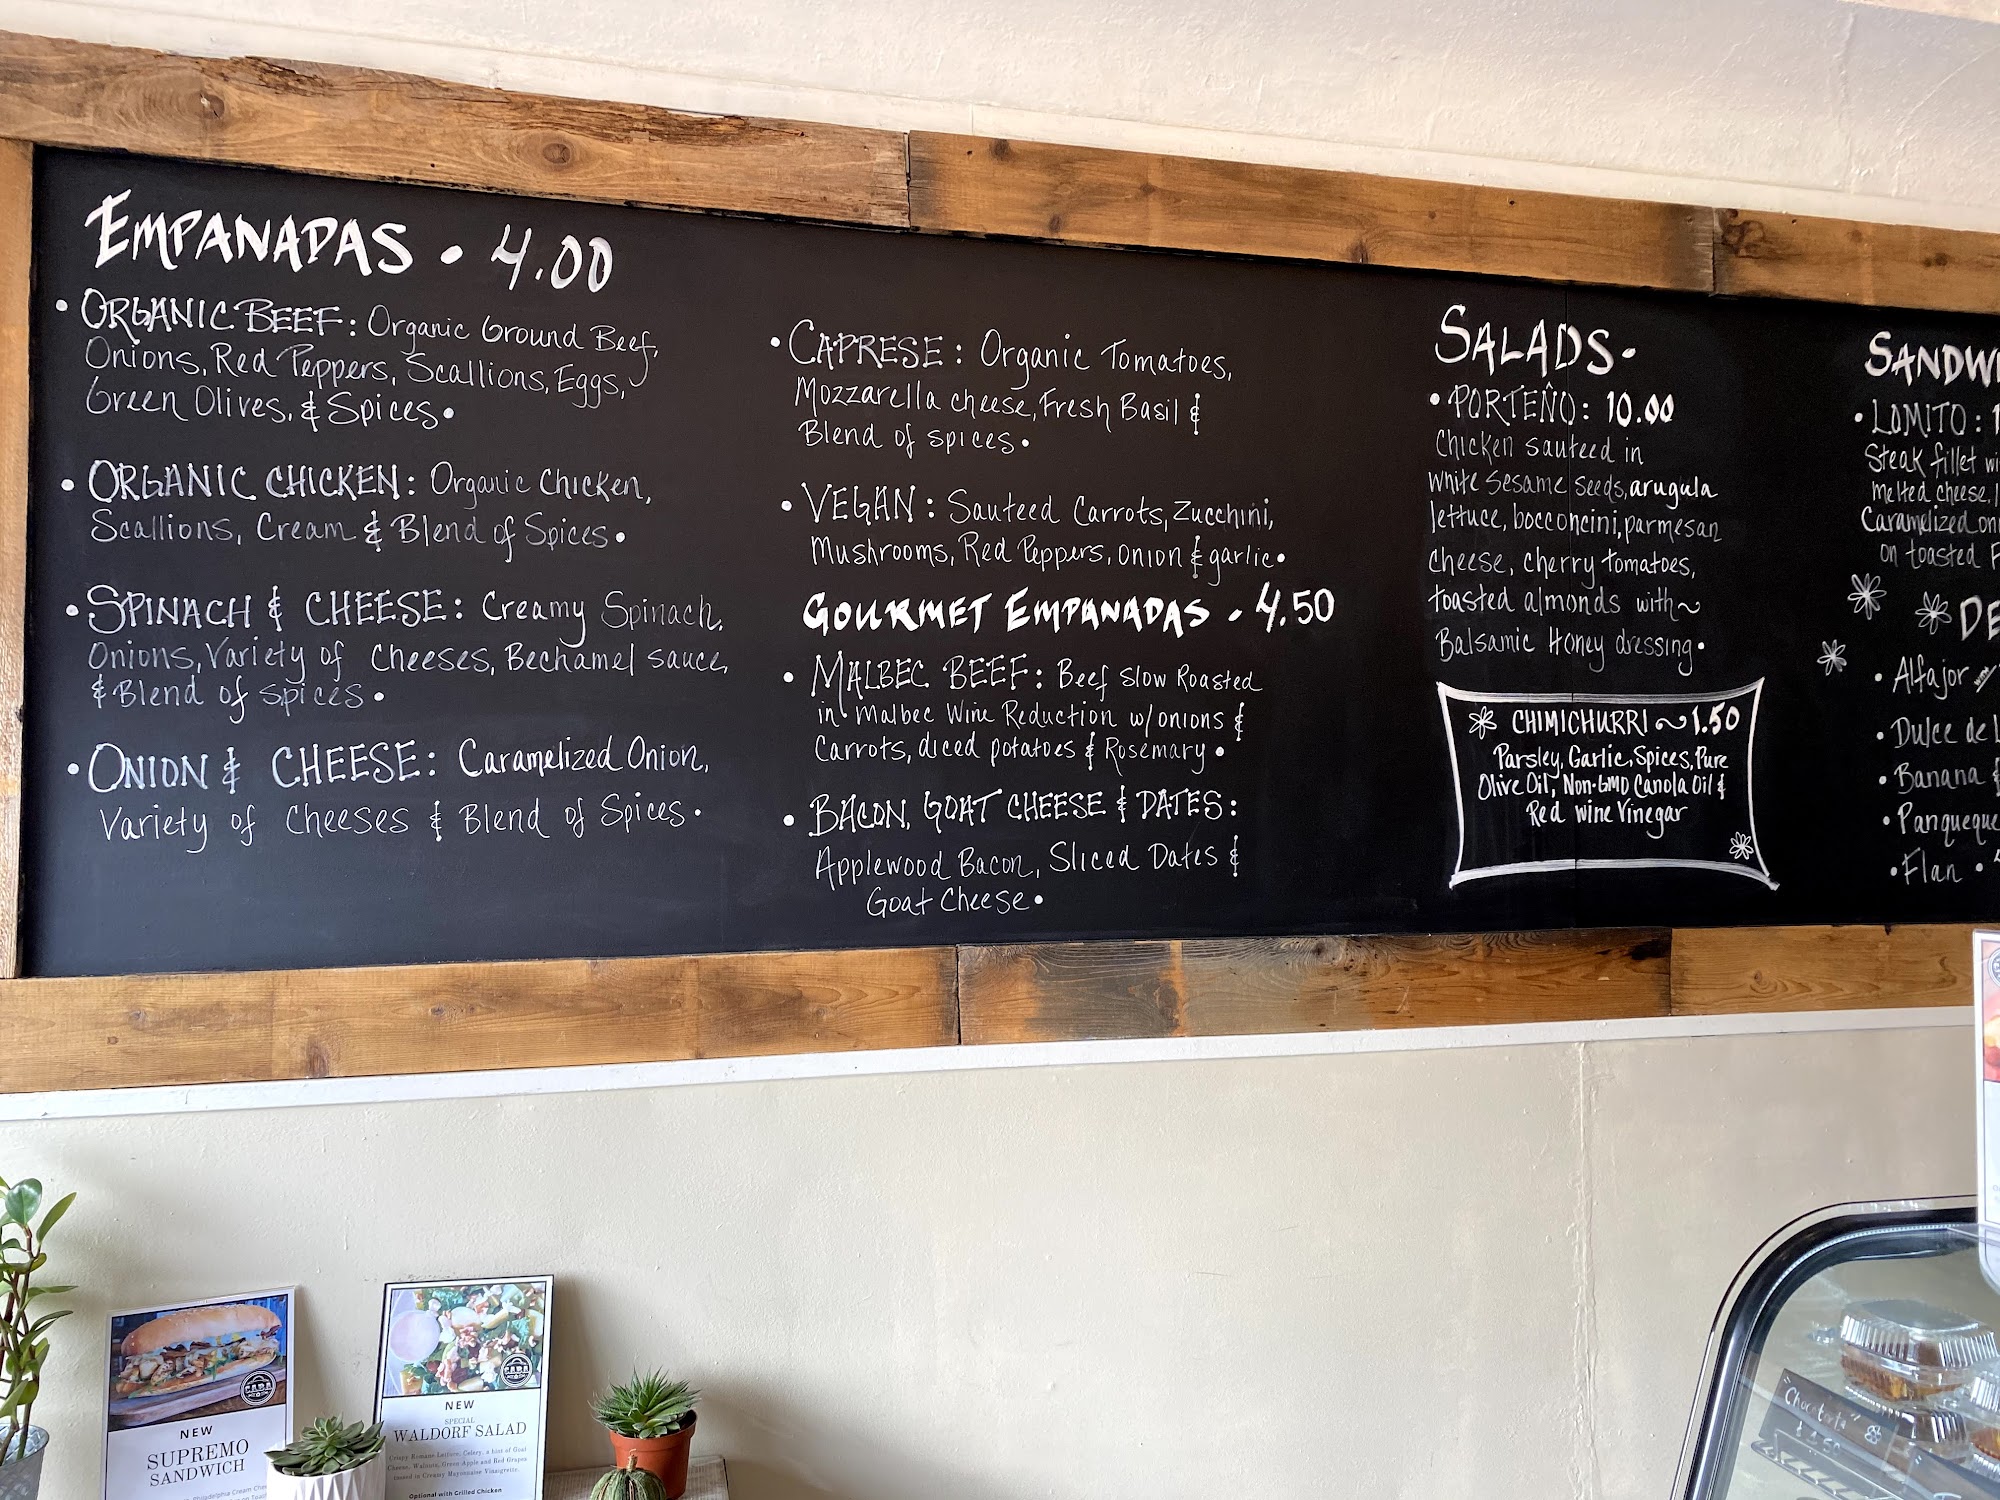 EMPANADAS • 4.00
• ORGANIC BEEF: Organic Ground Beef,
Onions, Red Peppers, Scallions, Eggs,
Green Olives, & Spices •
• ORGANIC CHICKEN: Organic Chicken,
Scallions, Cream & Blend of Spices •
• SPINACH & CHEESE: Creamy Spinach,
Onions, Variety of Cheeses, Bechamel sauce,
& Blend of spices •
• ONION & CHEESE: Caramelized Onion,
Variety of Cheeses & Blend of Spices •
• CAPRESE: Organic Tomatoes,
Mozzarella cheese, Fresh Basil &
Blend of spices •
• VEGAN: Sauteed Carrots, Zucchini,
Mushrooms, Red Peppers, onion & garlic •
GOURMET EMPANADAS • 4.50
• MALBEC BEEF: Beef Slow Roasted
in Malbec Wine Reduction w/onions &
Carrots, diced potatoes & Rosemary •
• BACON, GOAT CHEESE & DATES:
Applewood Bacon, Sliced Dates &
Goat Cheese •
SALADS •
• PORTEÑO: 10.00
Chicken sauteed in
white sesame seeds, arugula
lettuce, bocconcini, parmesan
cheese, cherry tomatoes,
toasted almonds with~
Balsamic Honey dressing •
CHIMICHURRI ~ 1.50
Parsley, Garlic, Spices, Pure
Olive Oil, Non-GMO Canola Oil &
Red wine Vinegar
SANDWI
• LOMITO: 1
Steak fillet wi
melted cheese, l
Caramelized on
on toasted F
DE
• Alfajor
• Dulce de L
• Banana &
• Panqueque
• Flan •
NEW
SUPREMO
SANDWICH
Philadelphia Cream Chee
NEW
SPECIAL
WALDORF SALAD
Crispy Romane Lettuce, Celery, a hint of Goat
Cheese, Walnuts, Green Apple and Red Grapes
tossed in Creamy Mayonnaise Vinaigrette.
Optional with Grilled Chicken